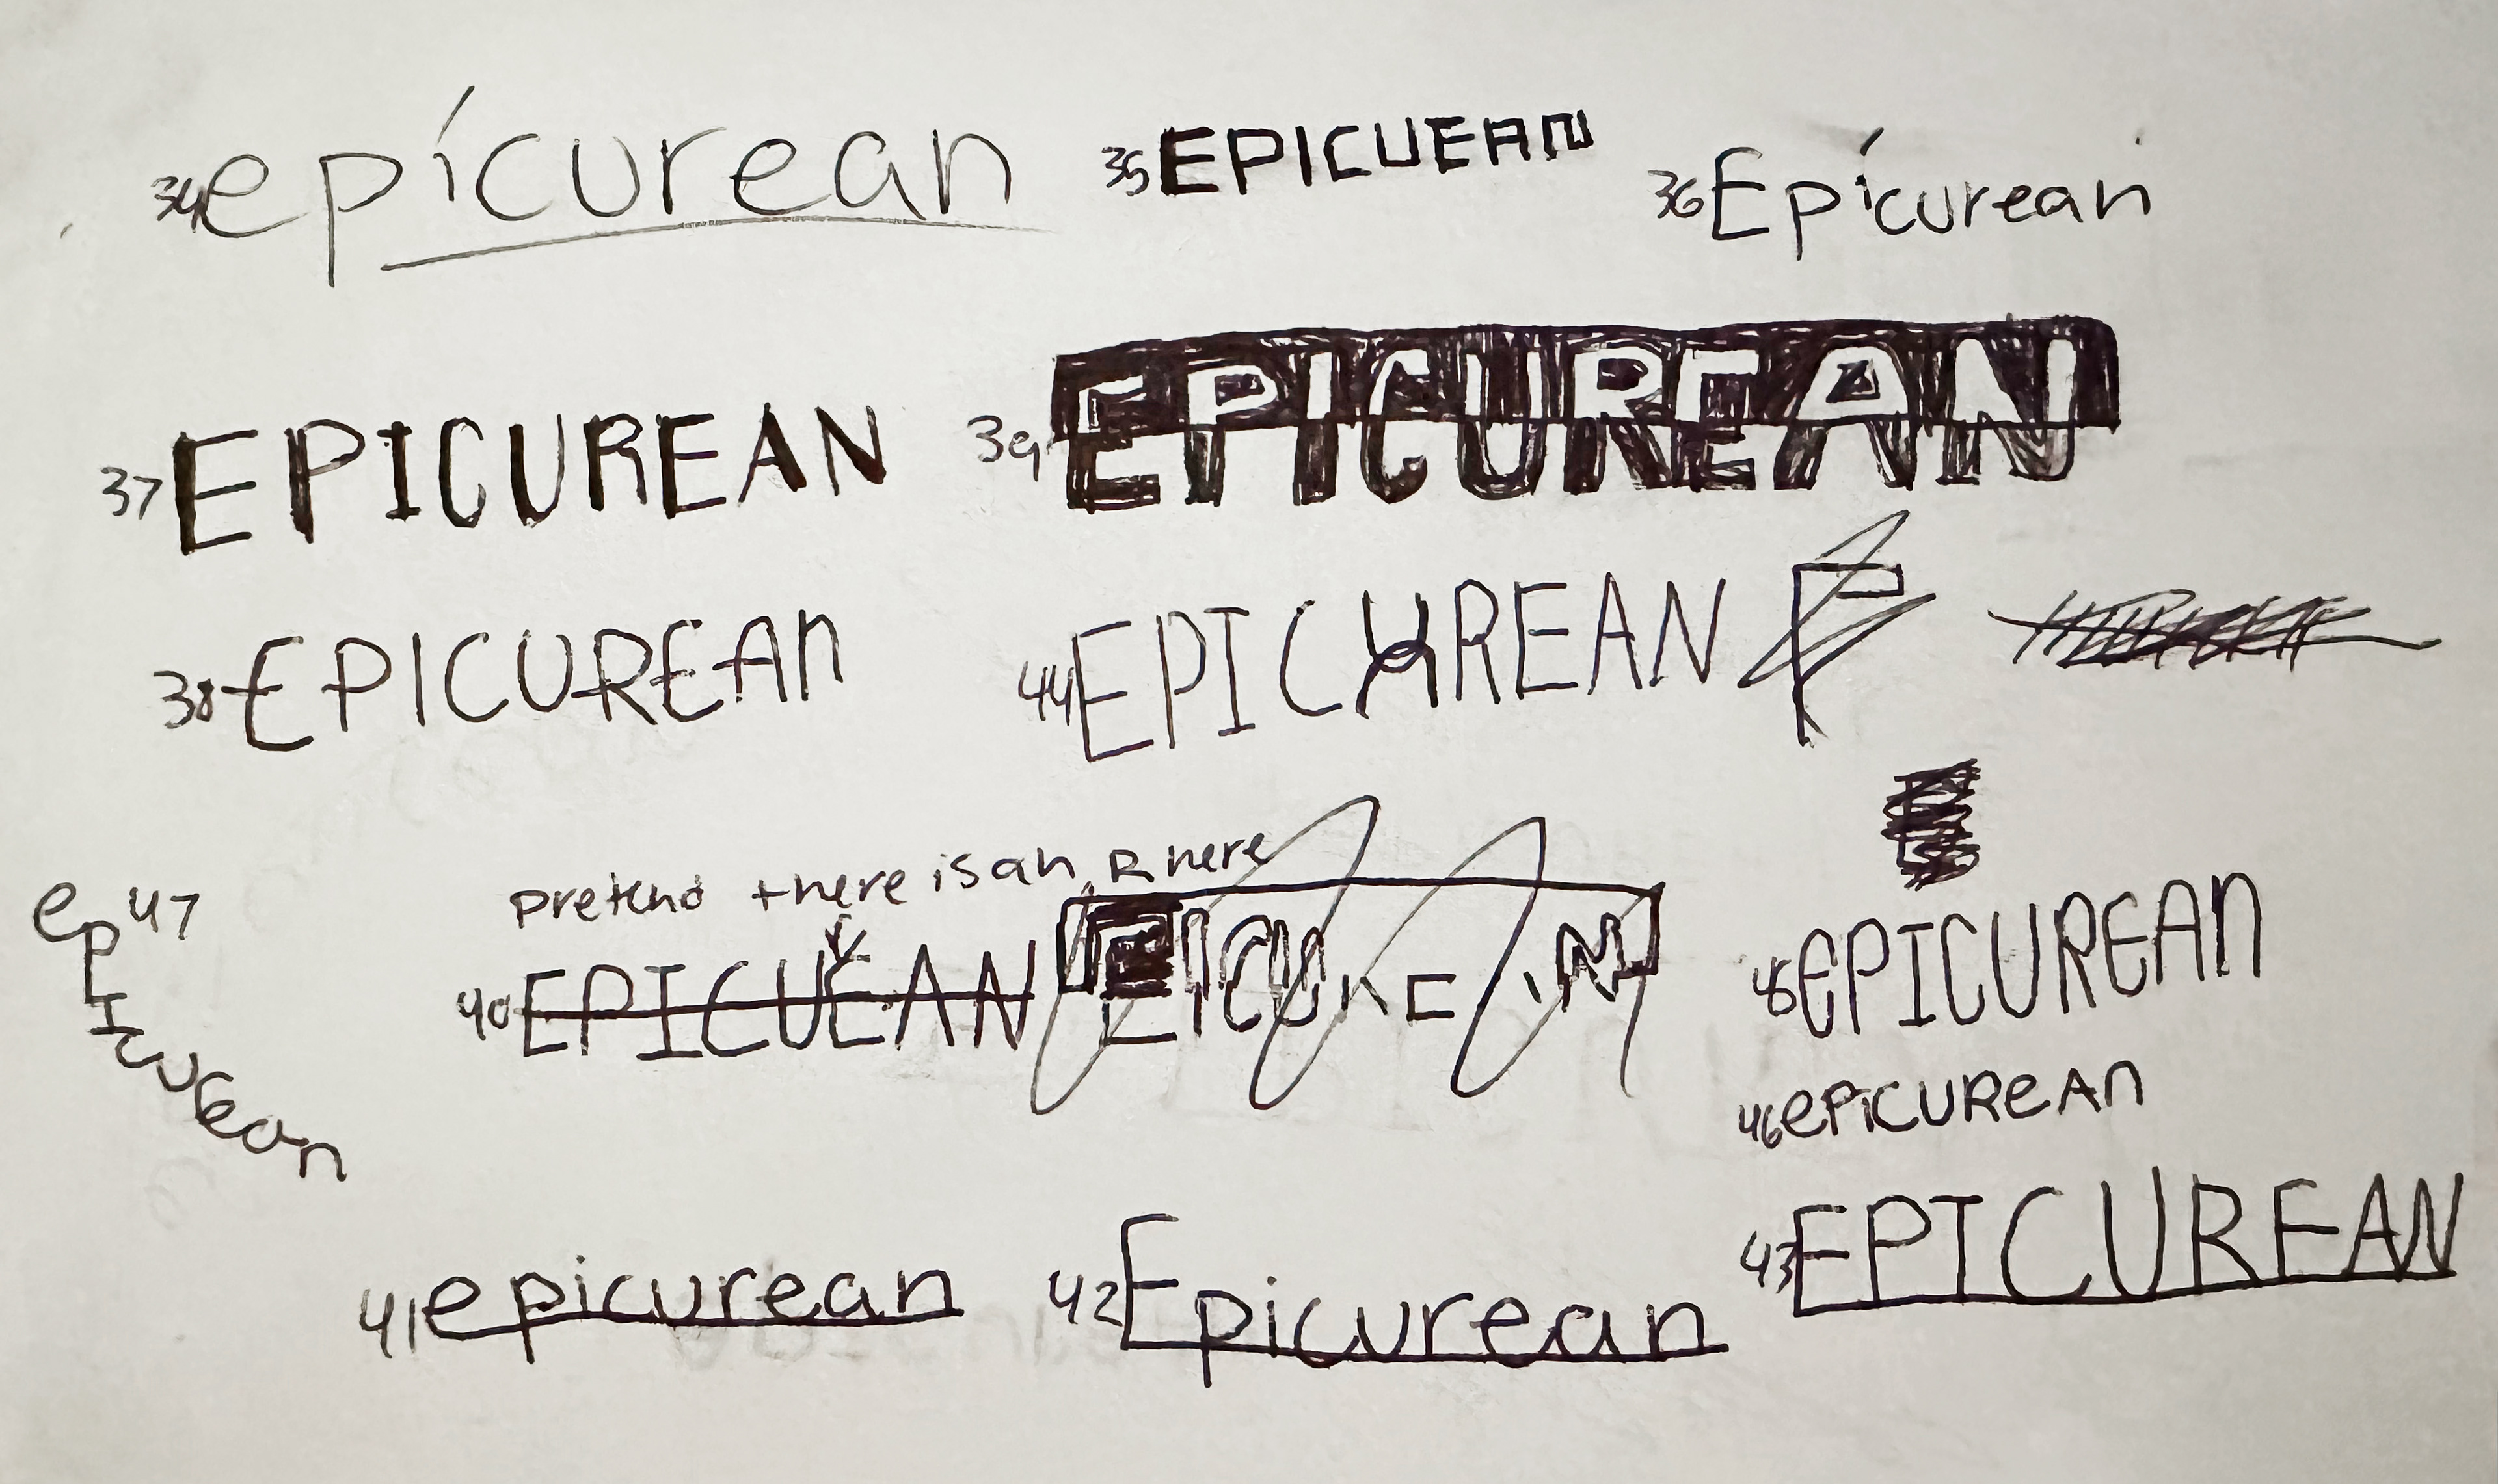 34 epicurean
35 EPICUEAN
36 Epicurean
37 EPICUREAN
39 EPICUREAN
38 EPICUREAN
44 EPICUREAN
pretend there is an R here
40 EPICUEAN
47 epIcurean
45 EPICUREAN
46 ePiCUReAn
43 EPICUREAN
41 epicurean
42 Epicurean